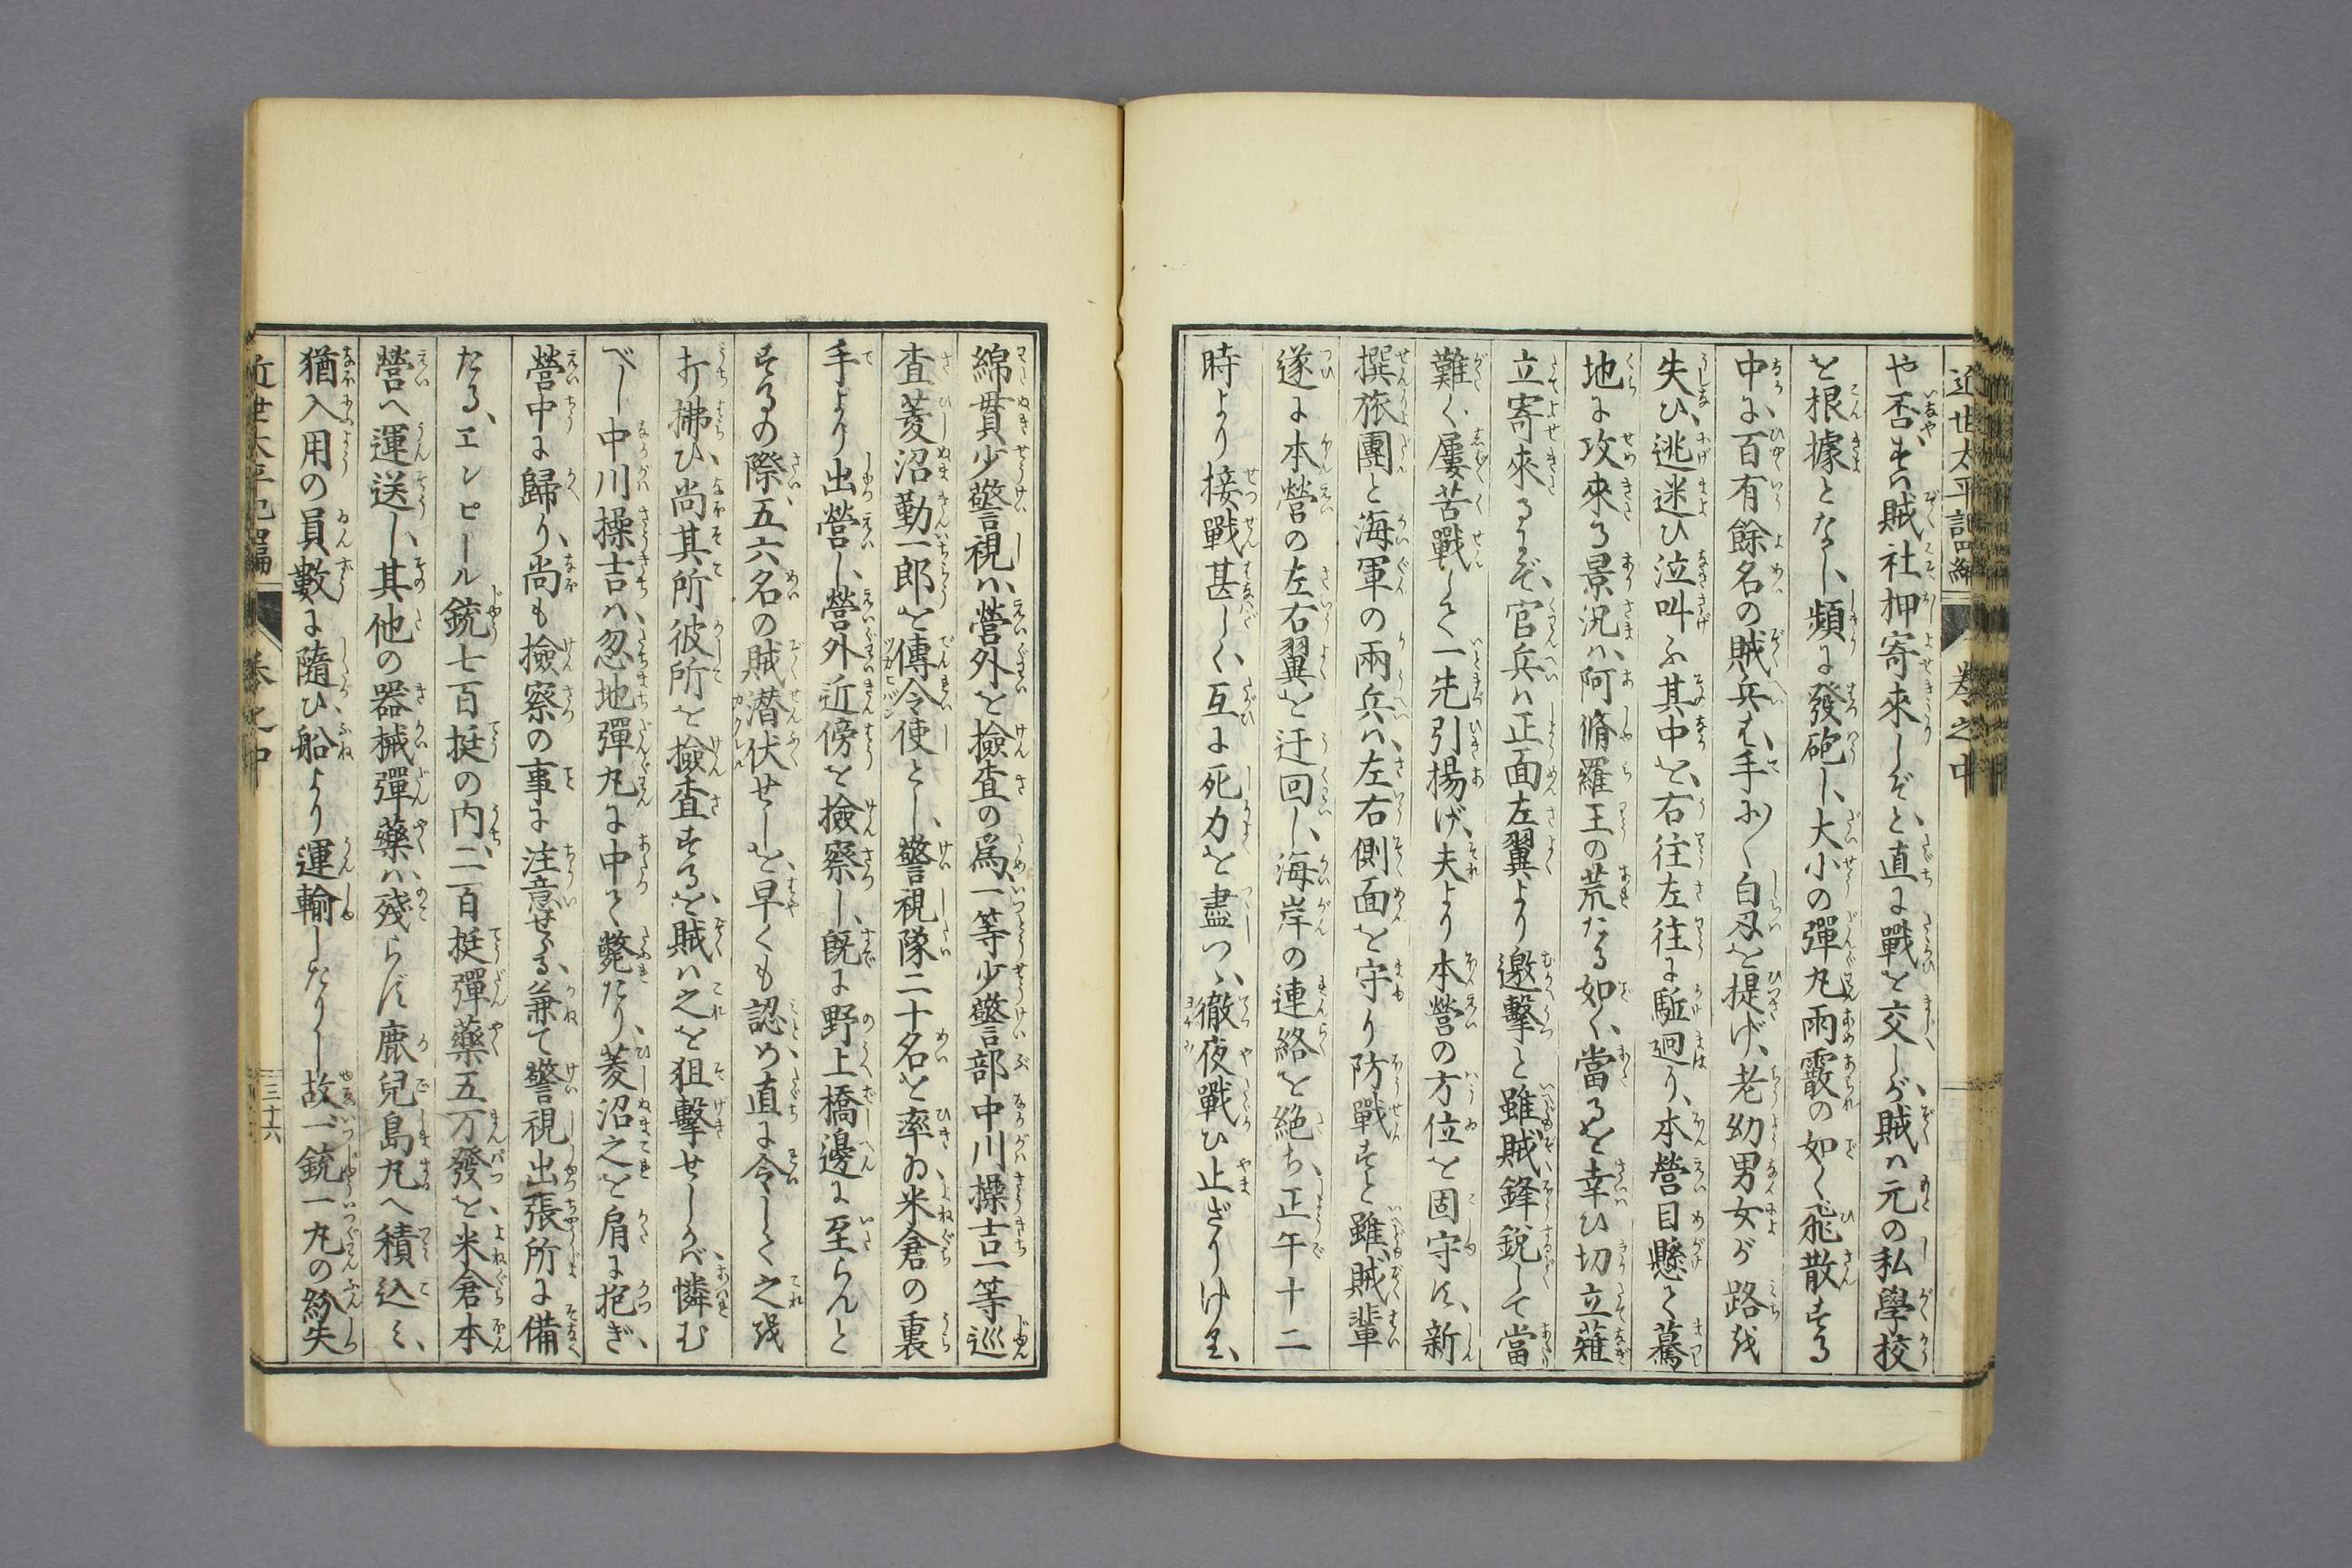 近世太平記四編 巻之中
や否、すハ賊社押寄來しぞと、直に戰を交しが、賊ハ元の私學校
を根據となし、頻に發砲し、大小の彈丸雨霰の如く飛散する
中に、百有餘名の賊兵を、手に〳〵白刃を提げ、老幼男女が路を
失ひ、逃迷ひ泣叫ふ其中を、右往左往に駈廻り、本營目懸て驀
地に攻來る景況ハ、阿脩羅王の荒たる如く、當るを幸ひ切立薙
立寄來るうぞ、官兵ハ正面左翼より邀撃と雖、賊鋒鋭して當
難く、屢苦戰して一先引揚げ、夫より本營の方位を固守す、新
撰旅團と海軍の兩兵ハ、左右側面を守り防戰すと雖、賊輩
遂に本營の左右翼を迂回し、海岸の連絡を絶ち、正午十二
時より接戰甚しく、互に死力を盡つゝ、徹夜戰ひ止ざりけり、
綿貫少警視ハ、營外を撿査の爲、一等少警部中川操吉一等巡
査菱沼勤一郎を傳令使とし、警視隊二十名を率ゐ米倉の裏
手より出營し、營外近傍を撿察し、既に野上橋邊に至らんと
するの際、五六名の賊潜伏せしを、早くも認め直に令して之を
打拂ひ、尚其所彼所を撿査するを、賊ハ之を狙撃せしかバ、憐む
べし中川操吉ハ、忽地彈丸に中て斃たり、菱沼之を肩に抱ぎ、
營中に歸り、尚も撿察の事に注意せる、兼て警視出張所に備
たる、エンピール銃七百挺の内、二百挺彈藥五万發を、米倉本
營へ運送し、其他の器械彈藥ハ、殘らず鹿兒島丸へ積込ミ、
猶入用の員數に隨ひ、船より運輸したりし故、一銃一丸の紛失
近世太平記四編 巻之中 三十六